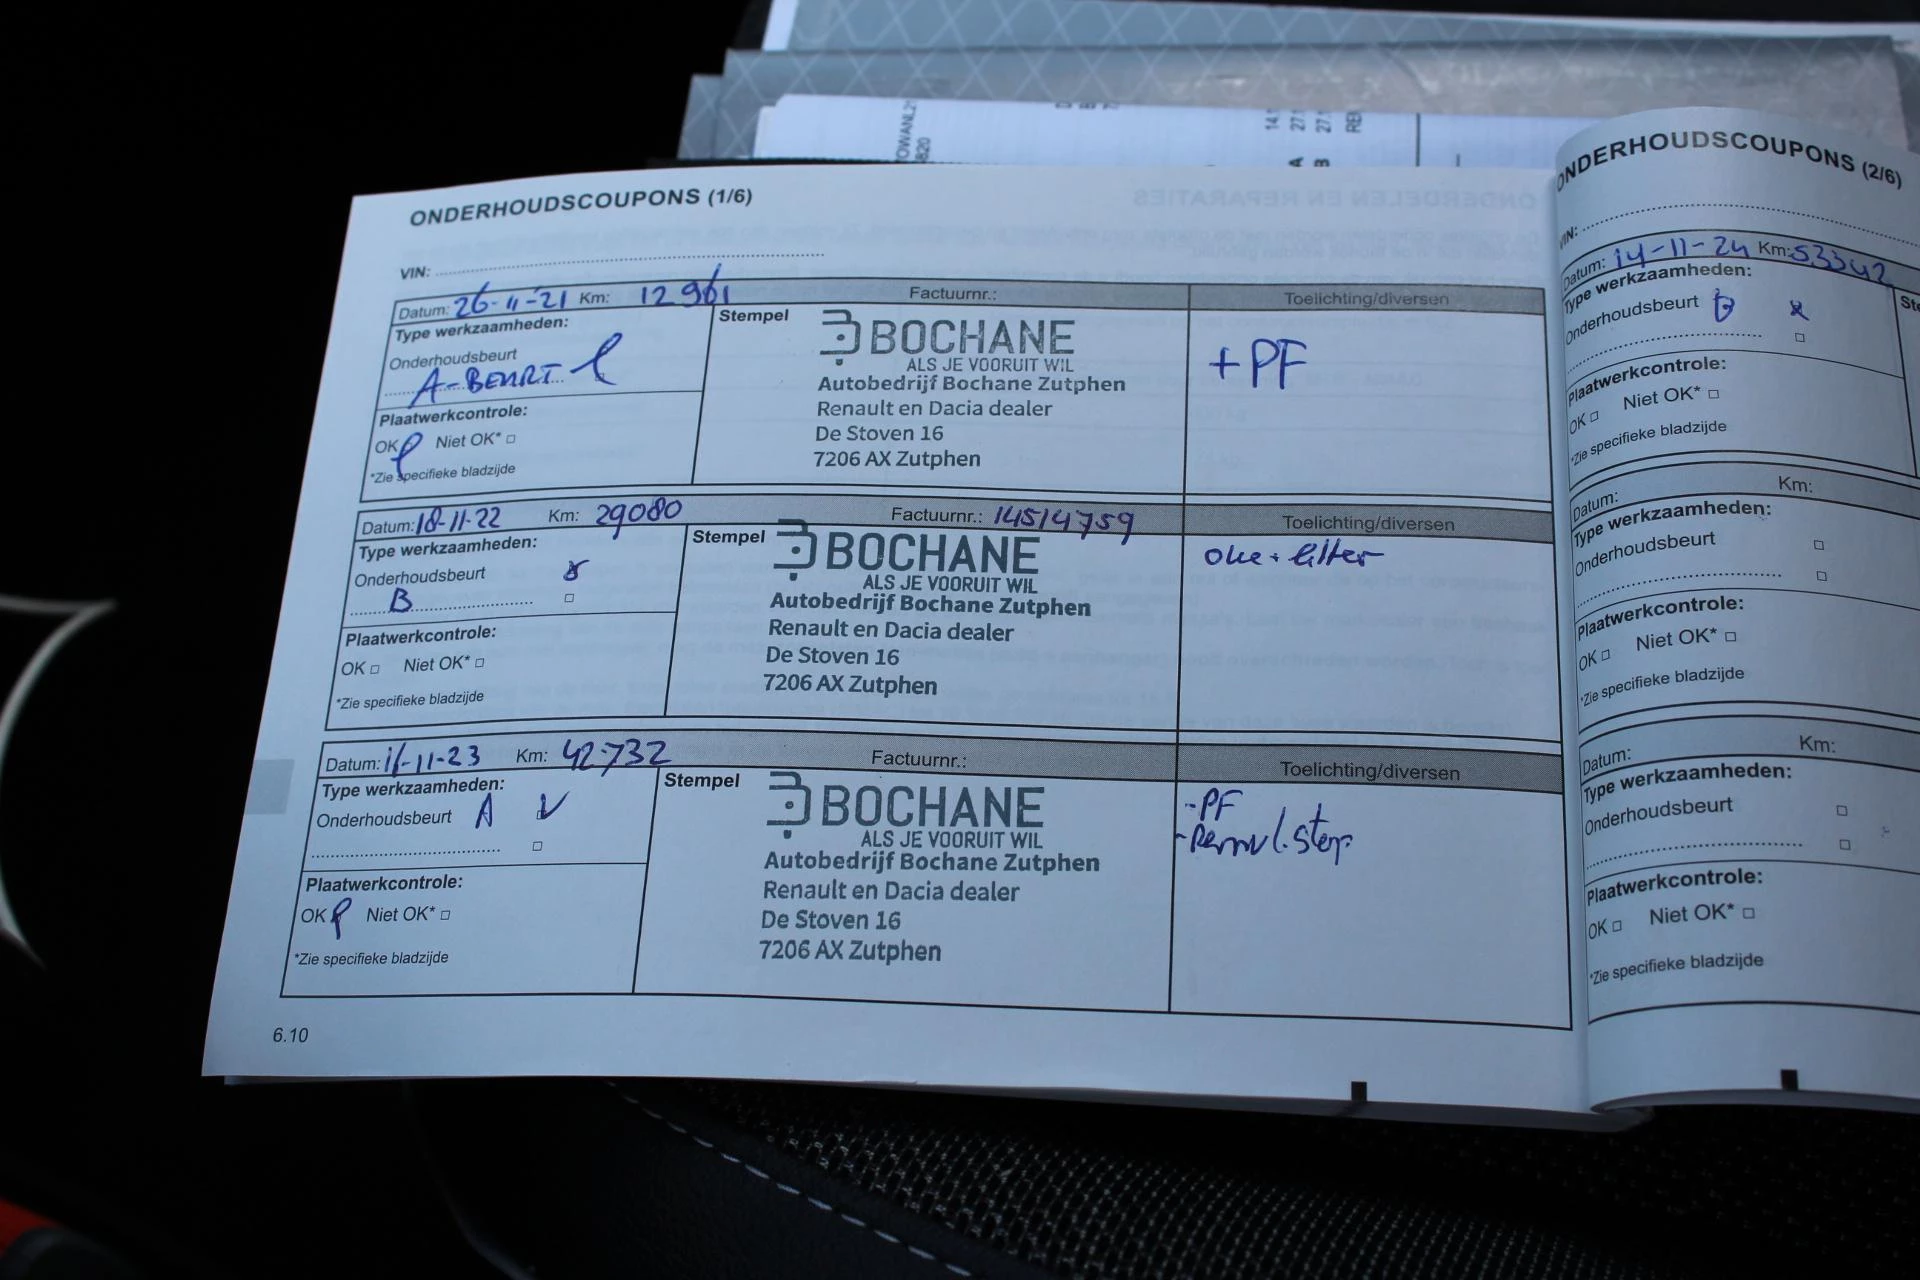 ONDERHOUDSCOUPONS (1/6)
VIN:
Datum: 26-11-21 Km: 12961 Factuurnr.: Toelichting/diversen
Type werkzaamheden:
Onderhoudsbeurt
A-BEURT
Plaatwerkcontrole:
OK Niet OK*
*Zie specifieke bladzijde
Stempel
BOCHANE
ALS JE VOORUIT WIL
Autobedrijf Bochane Zutphen
Renault en Dacia dealer
De Stoven 16
7206 AX Zutphen
+ PF
Datum: 18-11-22 Km: 29080 Factuurnr.: 14514759 Toelichting/diversen
Type werkzaamheden:
Onderhoudsbeurt
B
Plaatwerkcontrole:
OK Niet OK*
*Zie specifieke bladzijde
Stempel
BOCHANE
ALS JE VOORUIT WIL
Autobedrijf Bochane Zutphen
Renault en Dacia dealer
De Stoven 16
7206 AX Zutphen
olie + filter
Datum: 11-11-23 Km: 42732 Factuurnr.: Toelichting/diversen
Type werkzaamheden:
Onderhoudsbeurt A
Plaatwerkcontrole:
OK Niet OK*
*Zie specifieke bladzijde
Stempel
BOCHANE
ALS JE VOORUIT WIL
Autobedrijf Bochane Zutphen
Renault en Dacia dealer
De Stoven 16
7206 AX Zutphen
-PF
6.10
ONDERHOUDSCOUPONS (2/6)
VIN:
Datum: 14-11-24 Km: 53342
Type werkzaamheden:
Onderhoudsbeurt B
Plaatwerkcontrole:
OK Niet OK*
*Zie specifieke bladzijde
Datum: Km:
Type werkzaamheden:
Onderhoudsbeurt
Plaatwerkcontrole:
OK Niet OK*
*Zie specifieke bladzijde
Datum: Km:
Type werkzaamheden:
Onderhoudsbeurt
Plaatwerkcontrole:
OK Niet OK*
*Zie specifieke bladzijde